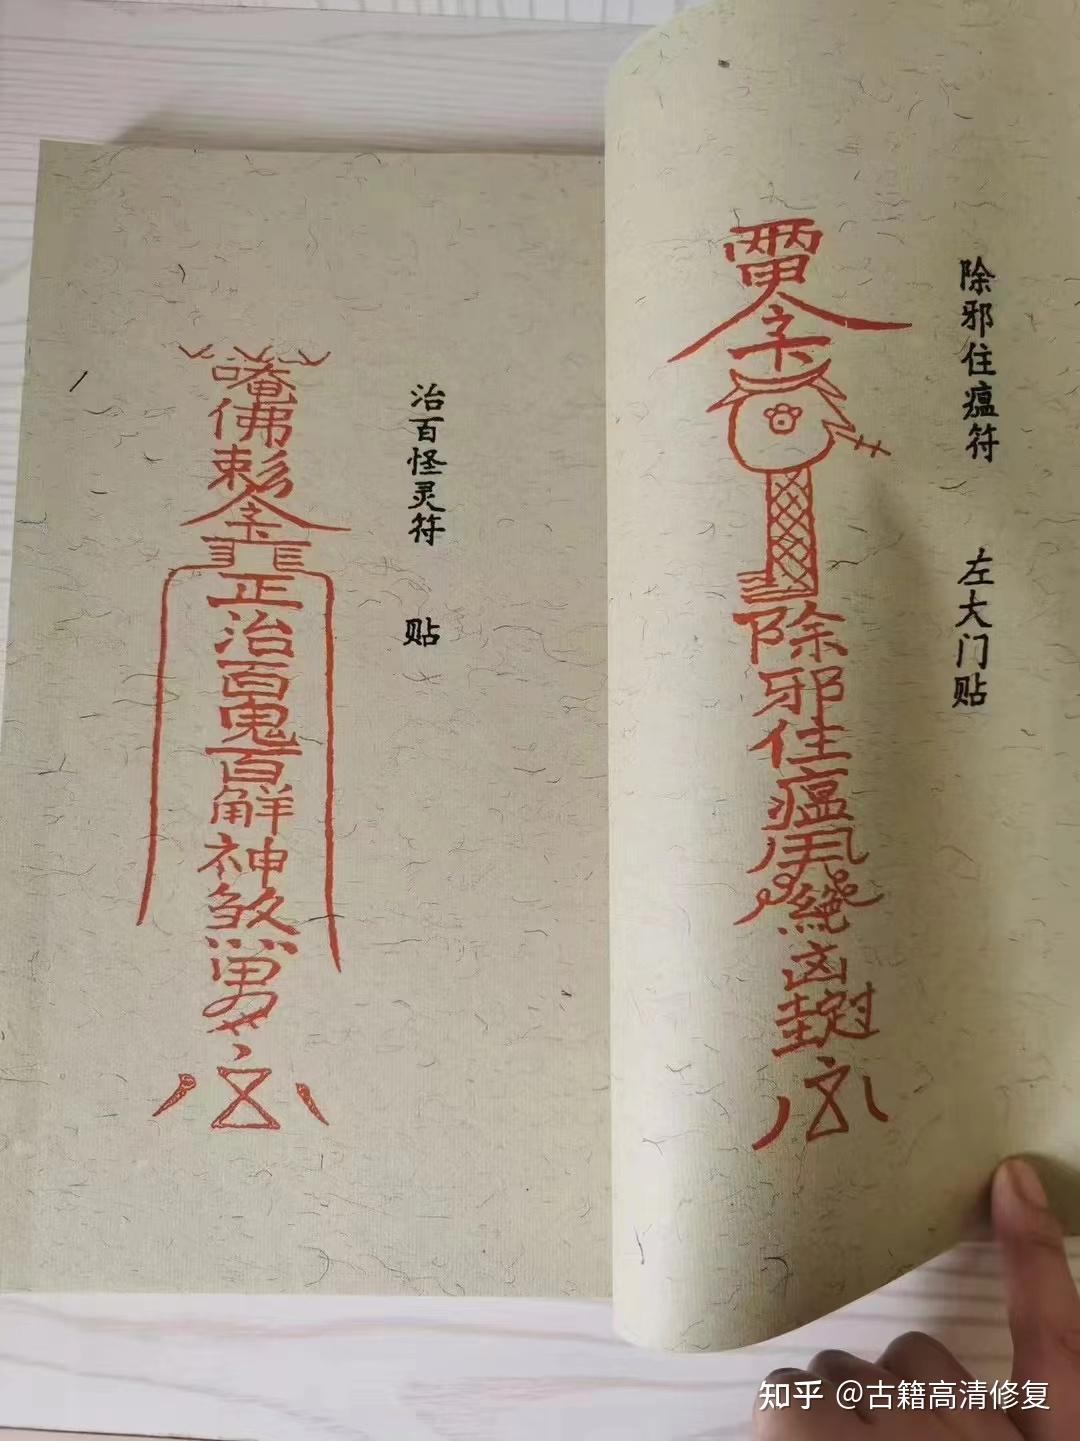 除邪住瘟符　左大门贴
除邪住瘟
絶凶
治百怪灵符　贴
唵佛勅令
正治百鬼百解神煞
知乎 @古籍高清修复